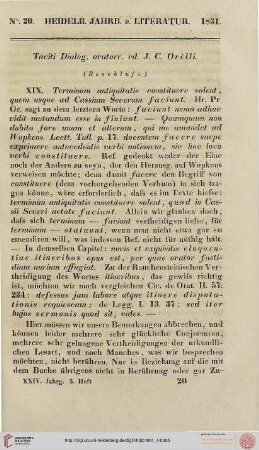 N°. 20. HEIDELB. JAHRB. D. LITERATUR. 1831.
Taciti Dialog. oratorr. ed. J. C. Orelli.
(Beschluss.)
XIX. Terminum antiquitatis constituere solent,
quem usque ad Cassium Severum faciunt. Hr. Pr
Or. sagt zu dem letztern Worte: faciunt nemo adhuc
vidit mutandum esse in finiunt. — Quamquam non
dubito fore unum et alterum, qui me amandet ad
Wopkens. Lectt. Tull. p. 17. docentem facere saepe
exprimere antecedentis verbi notionem, sic hoc loco
verbi constituere. Ref. gedenkt weder der Eine
noch der Andere zu seyn, der den Herausg. auf Wopkens
verweisen möchte; denn damit facere den Begriff von
constituere (dem vorhergehenden Verbum) in sich tra-
gen könne, wäre erforderlich, dass es im Texte hiefse:
terminum antiquitatis constituere solent, quod in Cas-
sii Severi aetate faciunt. Allein wir glauben doch,
dafs sich terminum — faciunt vertheidigen liefse, für
terminum — statuunt, wenn man nicht etwa gar so
emendiren will, was indessen Ref. nicht für nöthig hält.
— In demselben Capitel: novis et exquisitis eloquen-
tiae itineribus opus est, per quae orator fasti-
dium aurium effugiat. Zu der Rauchensteinischen Ver-
theidigung des Wortes itineribus, das gewifs richtig
ist, möchten wir noch vergleichen Cic. de Orat. II. 57.
234: defessus jam labore atque itinere disputa-
tionis requiescam: de Legg. I. 13. 37: sed iter
hujus sermonis quod sit, vides. —
Hier müssen wir unsere Bemerkungen abbrechen, und
können leider mehrere sehr glückliche Conjecturen,
mehrere sehr gelungene Vertheidigungen der urkundli-
chen Lesart, und noch Manches, was wir besprechen
möchten, nicht berühren. Nur in Beziehung auf die mit
dem Buche übrigens nicht in Berührung oder gar Zu-
XXIV. Jahrg. 3. Heft 20